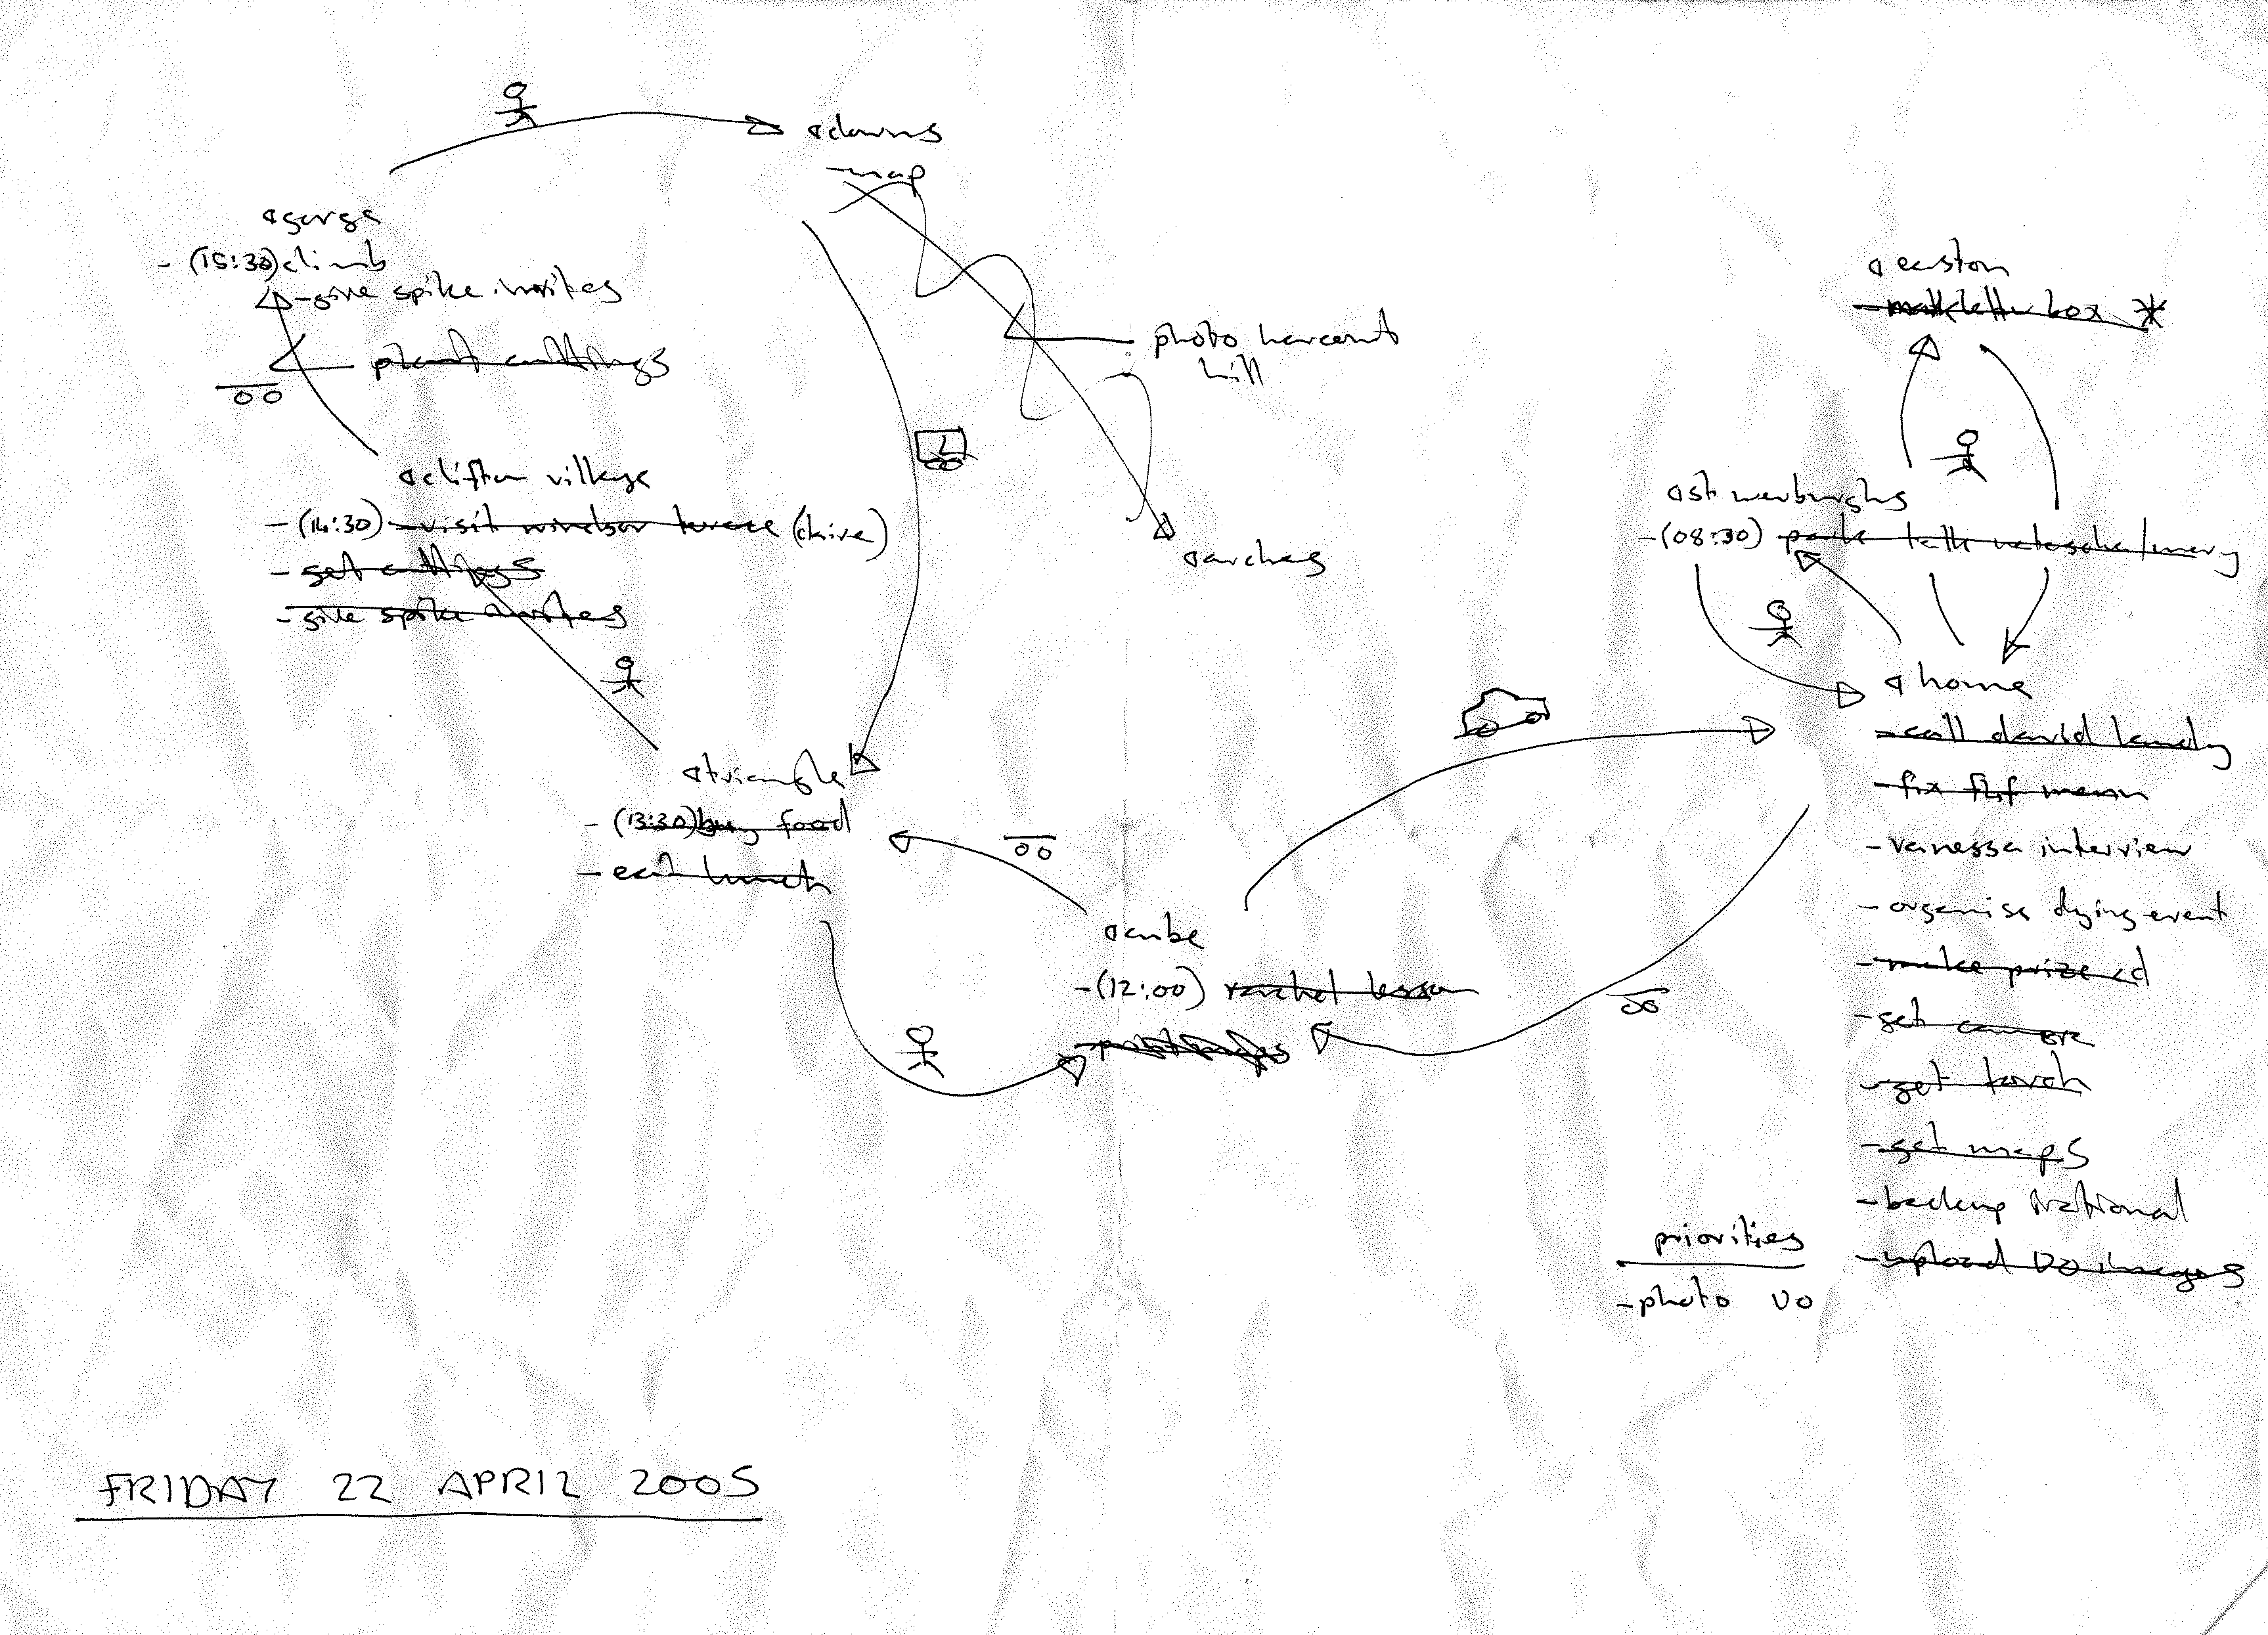 downs
- map
gorge
- (15:30) climb
- give spike invites
- plant cuttings
photo harcourt
hill
easton
- mark letter box *
clifton village
- (14:30) - visit windsor terrace (claire)
- get cuttings
- give spike invites
st werburghs
- (08:30) talk natasha/
arches
home
- call david
- fix menu
- vanessa interview
- organise dying event
- make prize cd
- get camera
- get torch
- get maps
- backup irational
- upload VO images
triangle
- (13:30) buy food
- eat lunch
cube
- (12:00) rachel lesson
priorities
- photo VO
FRIDAY 22 APRIL 2005